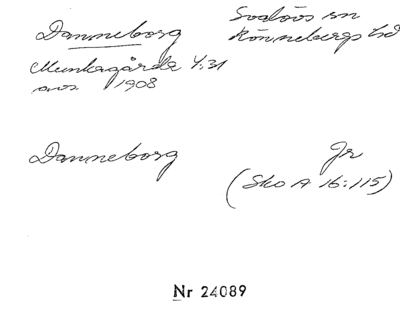 Danneborg
Svalövs sn
Rönnebergs hd
Munkagårda 4:31
avs 1908
Danneborg
Jr
(Sko A 16:115)
Nr 24089